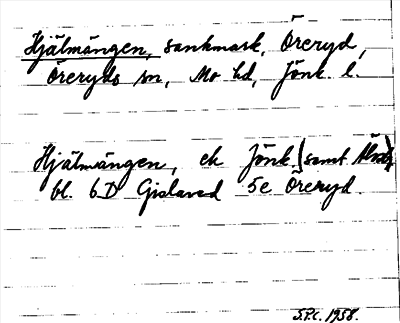 Hjälmängen, sankmark, Öreryd,
Öreryds sn, Mo hd, Jönk. l.
Hjälmängen, ek Jönk. (samt
bl. 6D Gislaved 5e Öreryd.
S.P.c. 1958.